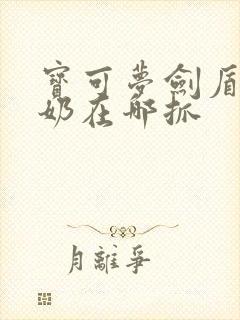 寶可夢劍盾
奶在哪抓
月離爭